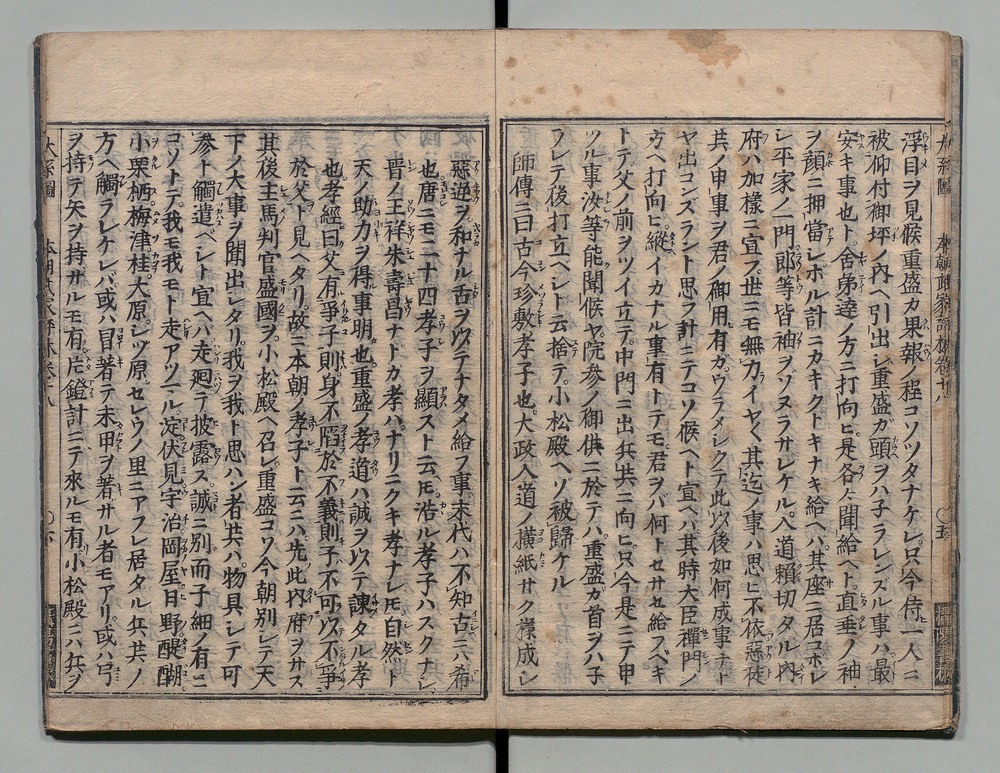 浮目ヲ見候重盛カ果報ノ程コソツタナケレ只今侍一人ニ
被仰付御坪ノ内ヘ引出シ重盛ガ頭ヲハ子ラレンズル事ハ最
安キ事也ト舎弟達ノ方ニ打向ヒ是各々聞給ヘト直垂ノ袖
ヲ顔ニ押當シボル計ニカキクトキナキ給ヘハ其座ニ居コボレ
シ平家ノ一門郎等皆袖ヲソヌラサレケル入道頼切タル内
府ハ加様ニ宣フ世ニモ無力イヤ〱其迄ノ事ハ思ヒ不依惡徒
共ノ申事ヲ君ノ御用有ガウラメシクテ此以後如何成事ナト
ヤ出コンズラント思フ計ニテコソ候ヘト宣ヘバ其時大臣禪門ノ
方ヘ打向ヒ縦イカナル事有トテモ君ヲバ何トセサセ給フベキ
トテ父ノ前ヲツイ立テ中門ニ出兵共ニ向ヒ只今是ニテ申
ツル事汝等能聞候ヤ院参ノ御供ニ於テハ重盛ガ首ヲハ子
ラレテ後打立ベシト云捨テ小松殿ヘゾ被歸ケル
師傳ニ曰古今珍敷孝子也大政入道ノ横紙サク様成シ
惡逆ヲ和ナル舌ヲ以テナタメ給フ事末代ハ不知古ニハ希
也唐ニモ二十四孝子ヲ顯スト云圧浩ル孝子ハスクナシ
晋ノ王祥朱壽昌ナトカ孝ハナリニクキ孝ナレ圧自然ト
天ノ助力ヲ得事明也重盛ノ孝道ハ誠ヲ以テ諫タル孝
也孝經曰父有爭子則身不陷於不義則子不可以不爭
於父ト見ヘタリ故ニ本朝ノ孝子ト云ニハ先此内府ヲサス
其後主馬判官盛國ヲ小松殿ヘ召レ重盛コソ今朝別シテ天
下ノ大事ヲ聞出シタリ我ヲ我ト思ハン者共ハ物具シテ可
参ト觸遣ヘシト宣ヘハ走廻テ披露ス誠ニ別而子細ノ有ニ
コソトテ我モ我モト走アツマル淀伏見宇治岡屋日野醍醐
小栗栖梅津桂大原シヅ原セレウノ里ニアフレ居タル兵共ノ
方ヘ觸ラレケレバ或ハ冒著テ未甲ヲ著サル者モアリ或ハ弓
ヲ持テ矢ヲ持サルモ有片鐙計ニテ來ルモ有小松殿ニハ兵ノ